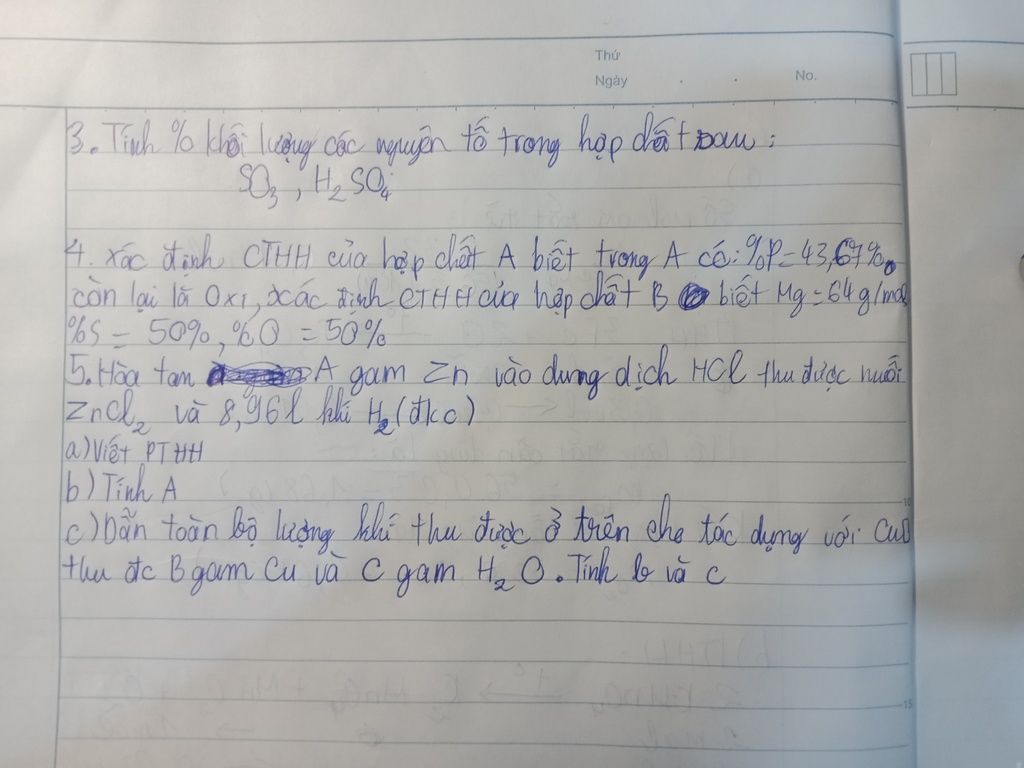 Thứ
Ngày . . No.
3. Tính % khối lượng các nguyên tố trong hợp chất sau:
SO₃, H₂SO₄
4. Xác định CTHH của hợp chất A biết trong A có: %P=43,67%.
còn lại là Oxi, xác định CTHH của hợp chất B biết Mg=64g/mol
%S = 50%, %O = 50%
5. Hòa tan A gam Zn vào dung dịch HCl thu được muối
ZnCl₂ và 8,96l khí H₂ (đkc)
a) Viết PTHH
b) Tính A
c) Dẫn toàn bộ lượng khí thu được ở trên cho tác dụng với CuO
thu đc B gam Cu và C gam H₂O. Tính b và c
10
15